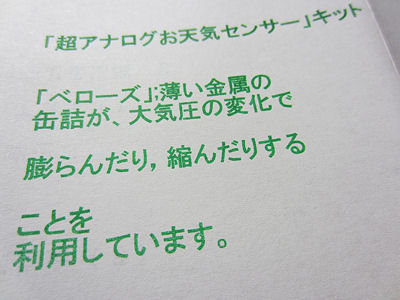 「超アナログお天気センサー」キット
「ベローズ」;薄い金属の
缶詰が、大気圧の変化で
膨らんだり，縮んだりする
ことを
利用しています。